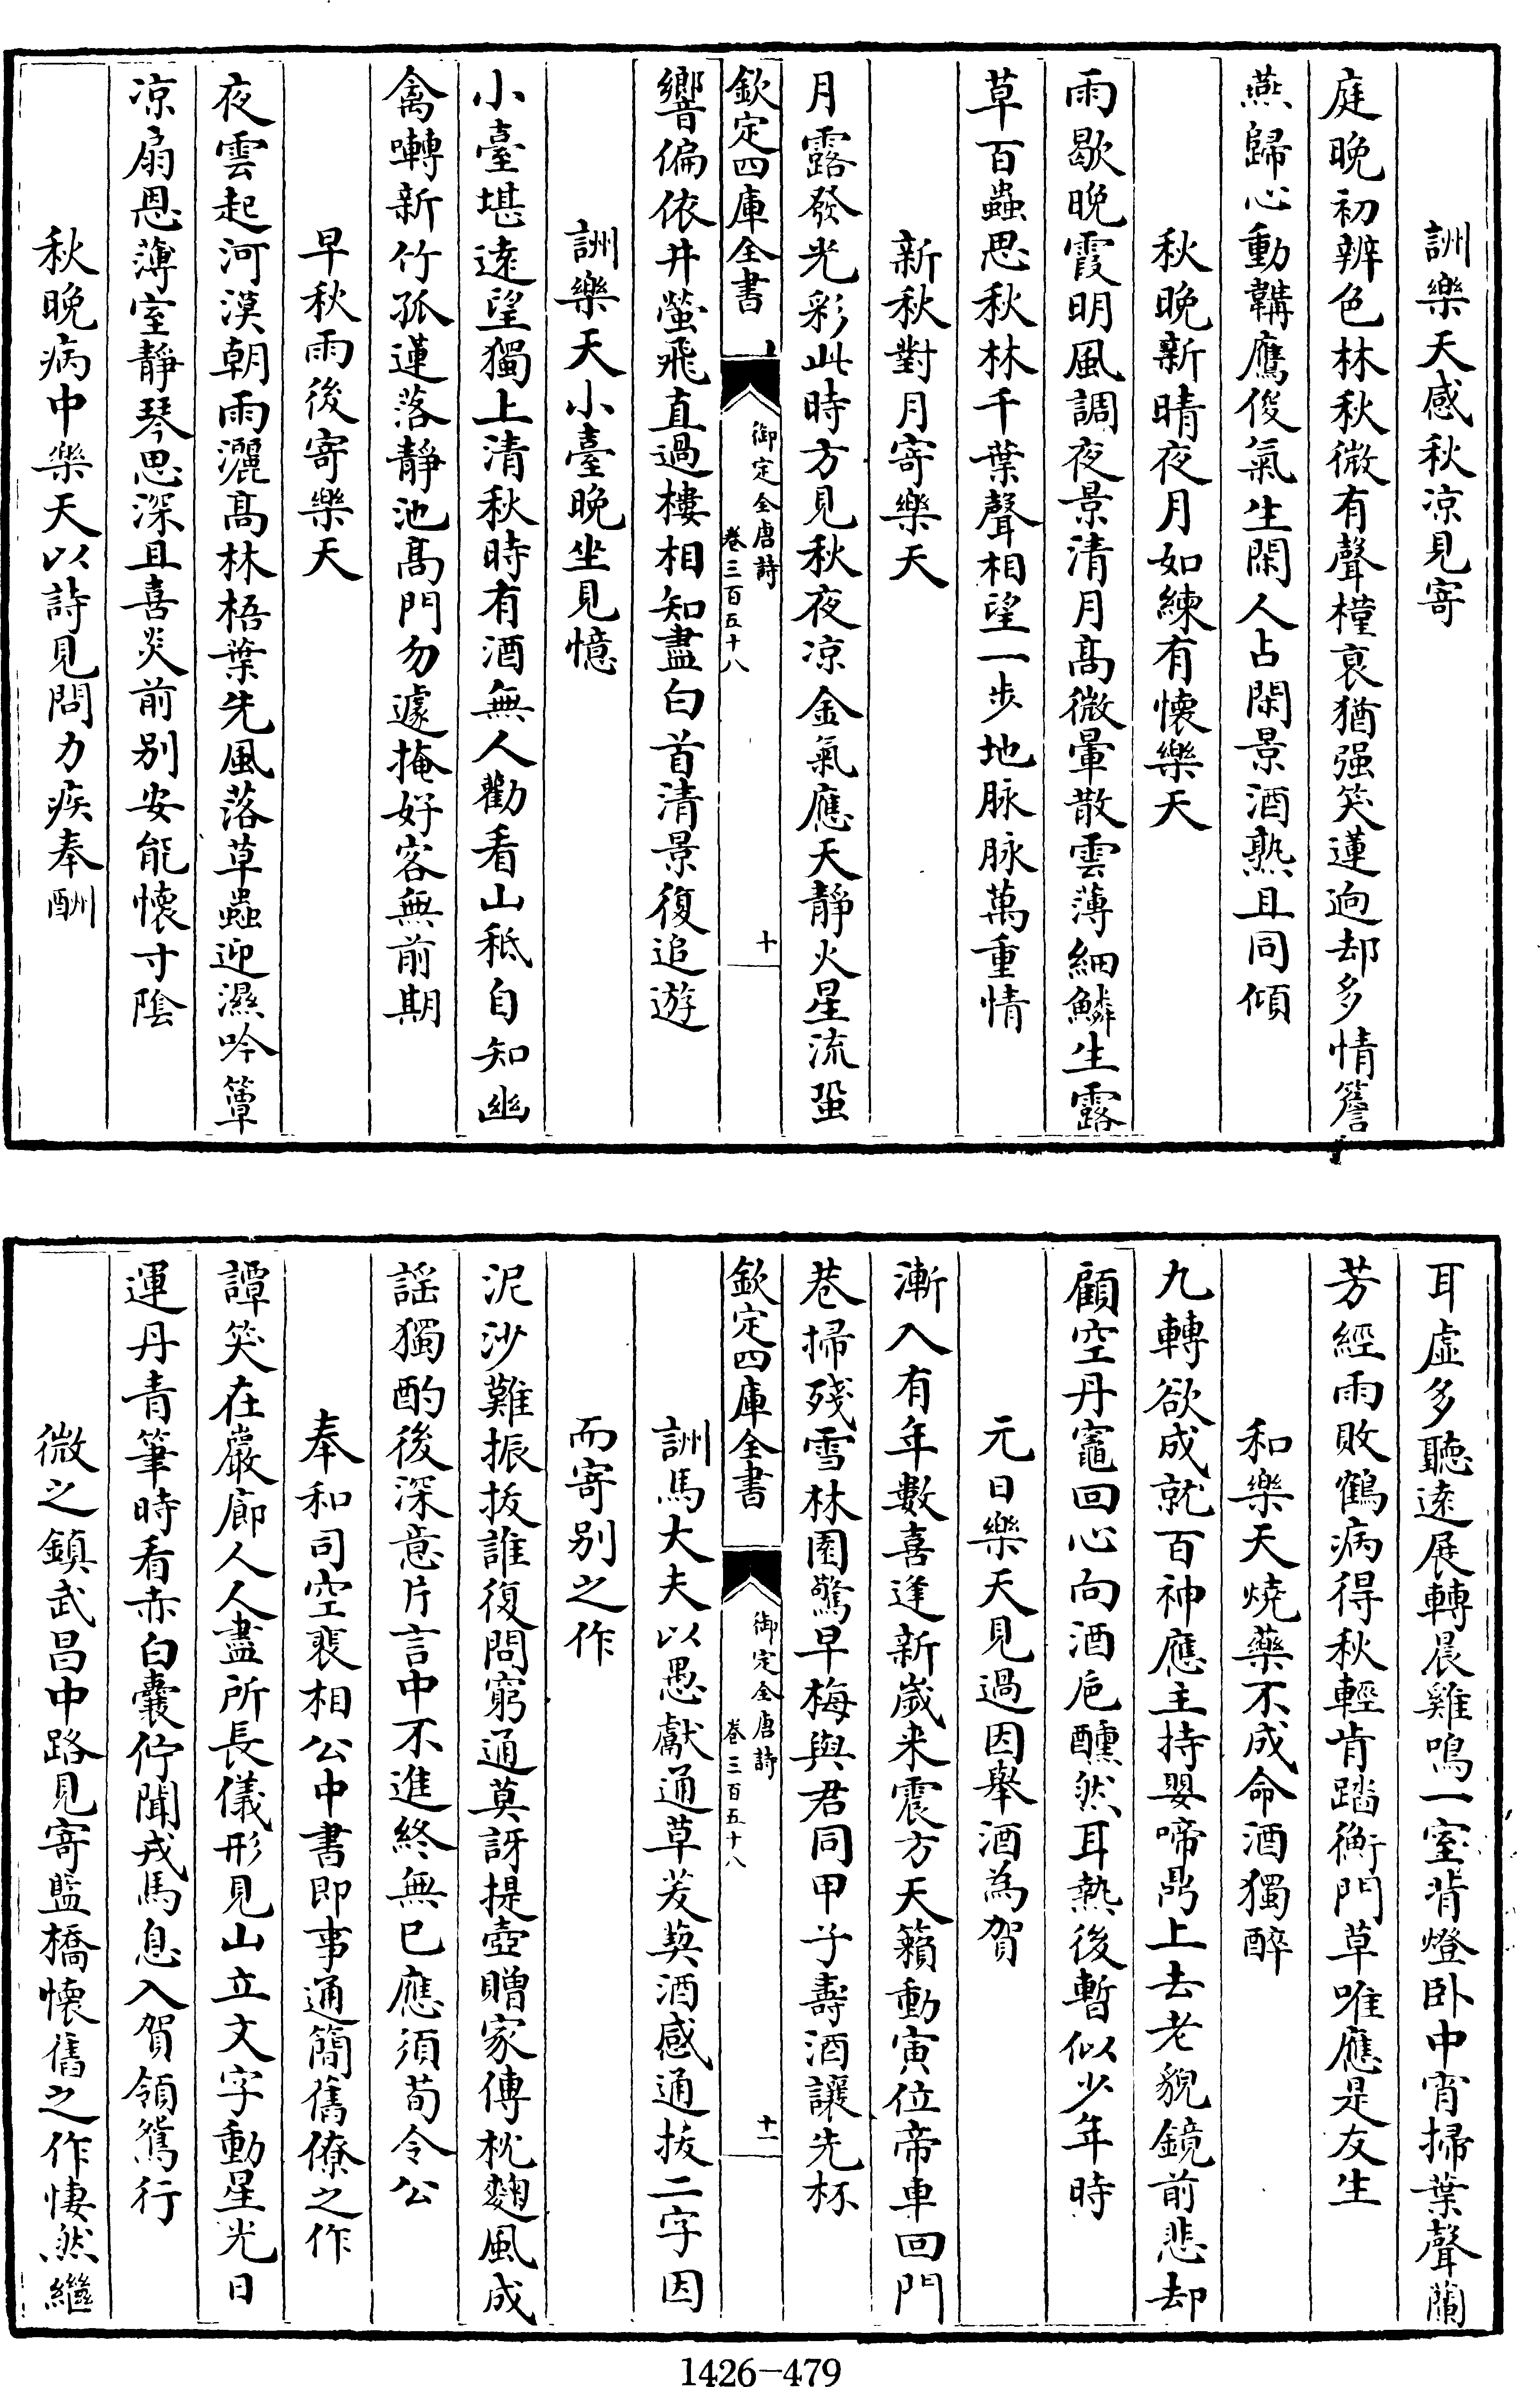 詶樂天感秋涼見寄
庭晚初辨色林秋微有聲槿衰猶强笑蓮迥却多情簷
燕歸心動鞲鷹俊氣生閑人占閑景酒熟且同傾
秋晚新晴夜月如練有懷樂天
雨歇晚霞明風調夜景清月高微暈散雲薄細鱗生露
草百蟲思秋林千葉聲相望一步地脉脉萬重情
新秋對月寄樂天
月露發光彩此時方見秋夜涼金氣應天靜火星流蛩
欽定四庫全書
御定全唐詩
卷三百五十八
十
響偏依井螢飛直過樓相知盡白首清景復追遊
詶樂天小臺晚坐見憶
小臺堪遠望獨上清秋時有酒無人勸看山秪自知幽
禽囀新竹孤蓮落靜池高門勿遽掩好客無前期
早秋雨後寄樂天
夜雲起河漢朝雨灑高林梧葉先風落草蟲迎濕吟簟
凉扇恩薄室靜琴思深且喜炎前别安能懷寸陰
秋晚病中樂天以詩見問力疾奉酬
耳虛多聽遠展轉晨雞鳴一室背燈卧中宵掃葉聲蘭
芳經雨敗鶴病得秋輕肯踏衡門草唯應是友生
和樂天燒藥不成命酒獨醉
九轉欲成就百神應主持嬰啼鼎上去老貌鏡前悲却
顧空丹竈回心向酒巵醺然耳熱後暫似少年時
元日樂天見過因舉酒為賀
漸入有年數喜逢新歲来震方天籟動寅位帝車回門
巷掃殘雪林園驚早梅與君同甲子壽酒讓先杯
欽定四庫全書
御定全唐詩
卷三百五十八
十一
詶馬大夫以愚獻通草茇葜酒感通拔二字因
而寄别之作
泥沙難振拔誰復問窮通莫訝提壺贈家傳枕麴風成
謡獨酌後深意片言中不進終無已應須荀令公
奉和司空裴相公中書即事通簡舊僚之作
譚笑在巖廊人人盡所長儀形見山立文字動星光日
運丹青筆時看赤白囊佇聞戎馬息入賀領鴛行
微之鎮武昌中路見寄藍橋懷舊之作悽然繼
1426-479